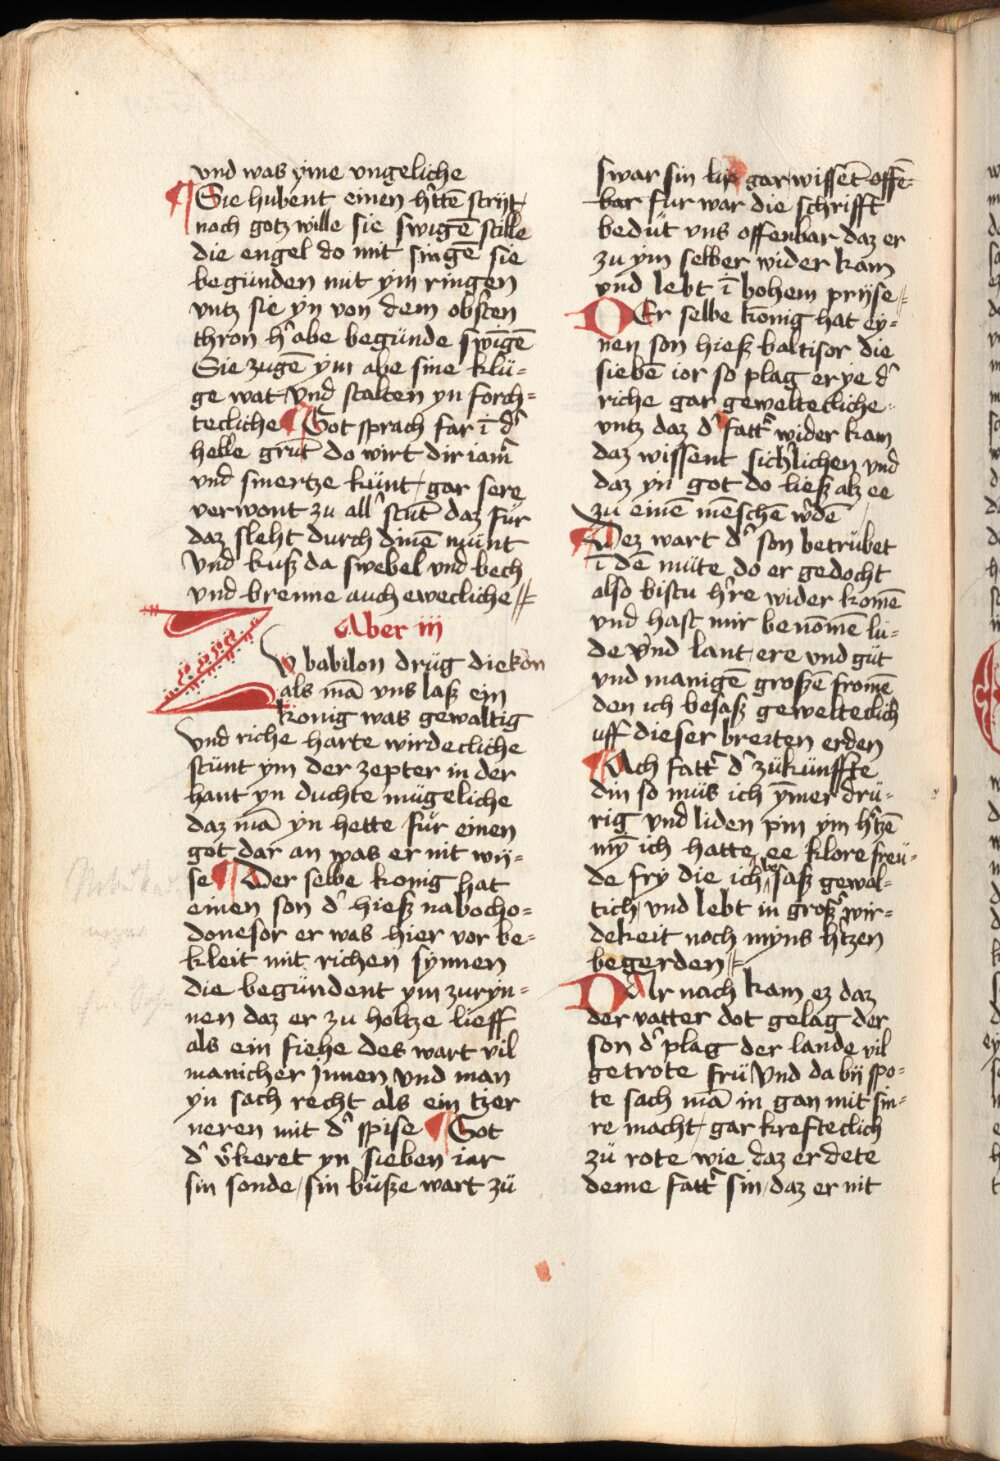 vnd was yme vngeliche
Sie hubent einen h̾tē strijt
nach gotz wille sie swigē stille
die engel do mit singē sie
begunden mit ym ringen
vntz sie yn von dem obsten
thron h̾abe begunde swigē
Sie zugē ym abe sine klu-
ge wat Vnd stalten yn forch-
tecliche Got sprach far ī d̾
helle grūt do wirt dir iam̾
vnd smertze kunt gar sere
verwont zu all̾ stūt daz für
daz sleht durch dinē munt
Vnd kusz da swebel vnd bech
vnd brenne auch ewecliche
Aber iij
Zv babilon drug die kōn
als mā vns lasz ein
konig was gewaltig
Vnd riche harte wirdecliche
stunt ym der zepter in der
hant yn duchte mugeliche
daz mā yn hette für einen
got dar an was er nit wij-
se Der selbe konig hat
einen son d̾ hiesz nabocho-
donesor er was hier vor be-
kleit mit richen synnen
die begundent ym zuryn-
nen daz er zu holtze lieff
als ein fiehe des wart vil
manicher Jnnen Vnd man
yn sach recht als ein tzer
neren mit d̾ spise Got
d̾ v̾keret yn sieben iar
sin sonde sin busze wart zü
swar sin lip gar wissēt offē-
bar fur war die schrifft
bedüt vns offenbar daz er
zu ym selber wider kam
vnd lebt ī hohem prijse
DEr selbe konig hat ey-
nen son hiesz baltisor die
siebē ior so plag er ye d̾
riche gar geweltecliche
vntz daz d̾ fatt̾ wider kam
daz wissent sich̾lichen vnd
daz yn got do liesz alz ee
zu einē mēschē w̾dē
Dez wart d̾ son betrübet
ī dē müte do er gedocht
also bistu h̾re wider komē
vnd hast mir benōmē lu-
de Vnd lant ere vnd güt
vnd manigē groszē fromē
den ich besasz geweltecliche
uff dieser breiten erden
Ach fatt̾ d̾ zükünffte
din so müs ich ȳmer dru-
rig vnd liden pin ym h̾tzē
mȳ ich hatte ee klore freü-
de fry die ich besasz gewal-
tich vnd lebt in grosz̾ wir-
dekeit noch myns h̾tzen
begerden
DAr nach kam ez daz
der vatter dot gelag der
son d̾ plag der lande vil
getrote frü Vnd da bij spo-
te sach mā in gan mit sin-
re macht gar krefteclich
zü rote wie daz er dete
deme fatt̾ sin daz er nit